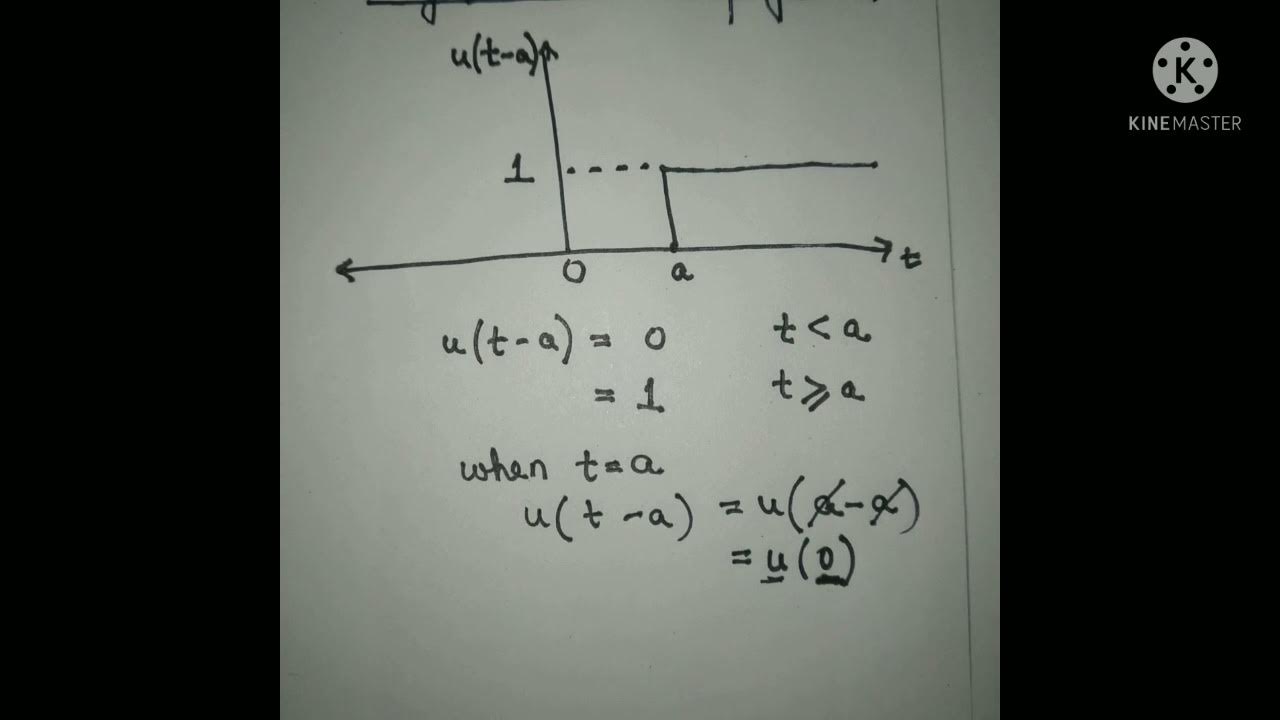 u(t-a)
KINEMASTER
1
0 a t
u(t-a) = 0 t < a
= 1 t ⩾ a
when t=a
u(t-a) = u(a-a)
= u(0)